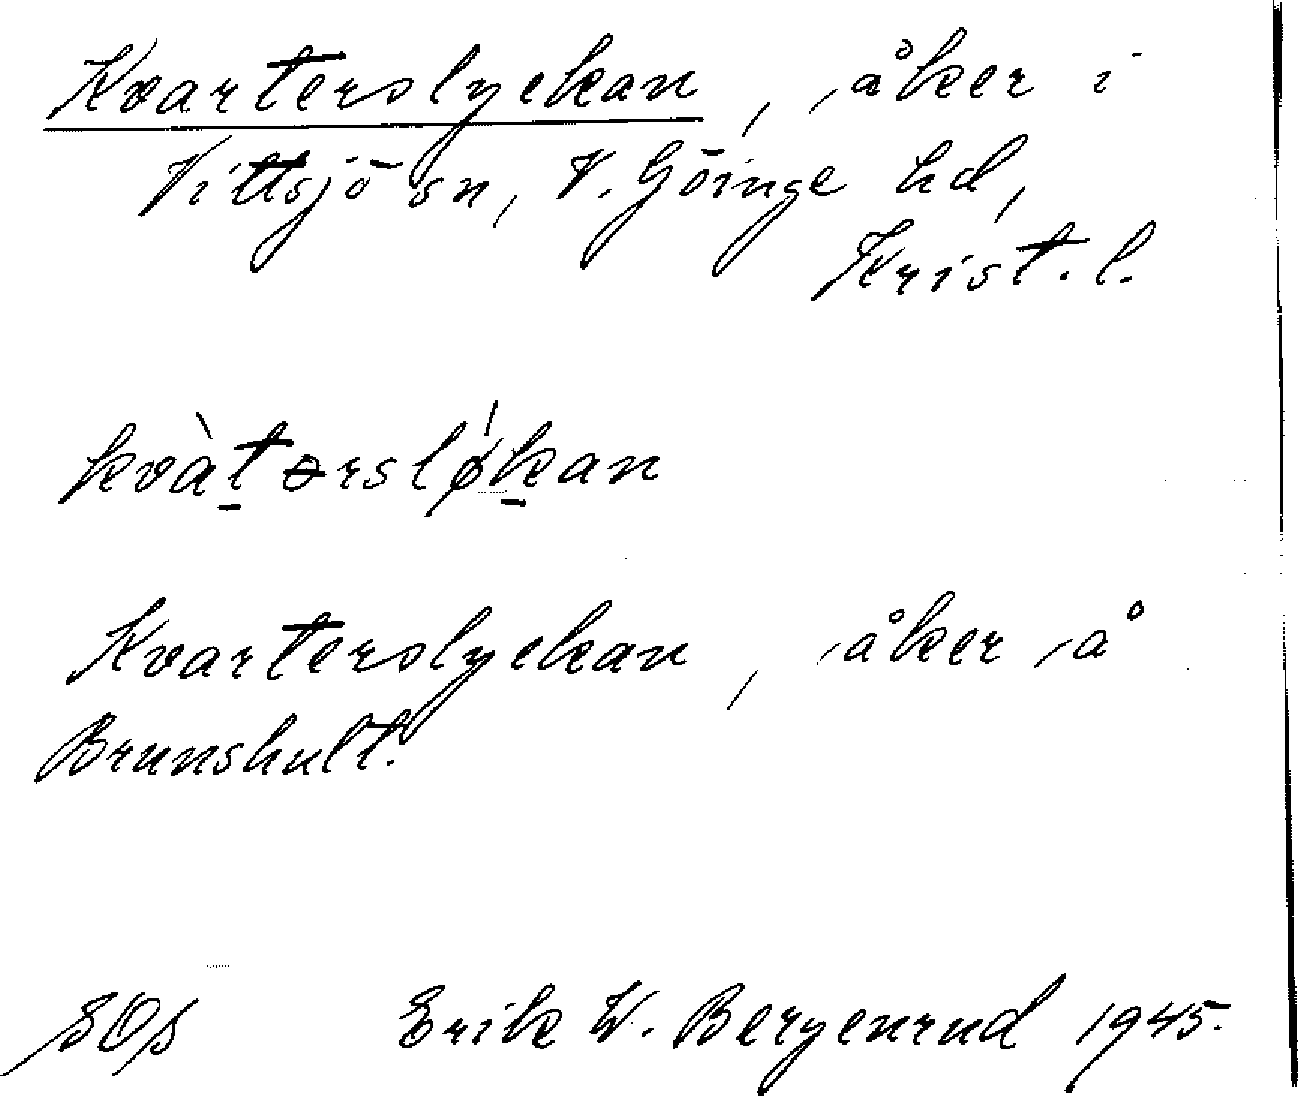 Kvarterslyckan, åker i
Vittsjö sn, V. Göinge hd,
Krist. l.
kvàtərsløkan
Kvarterslyckan, åker å
Brunshult.
Erik W. Bergenrud 1945.